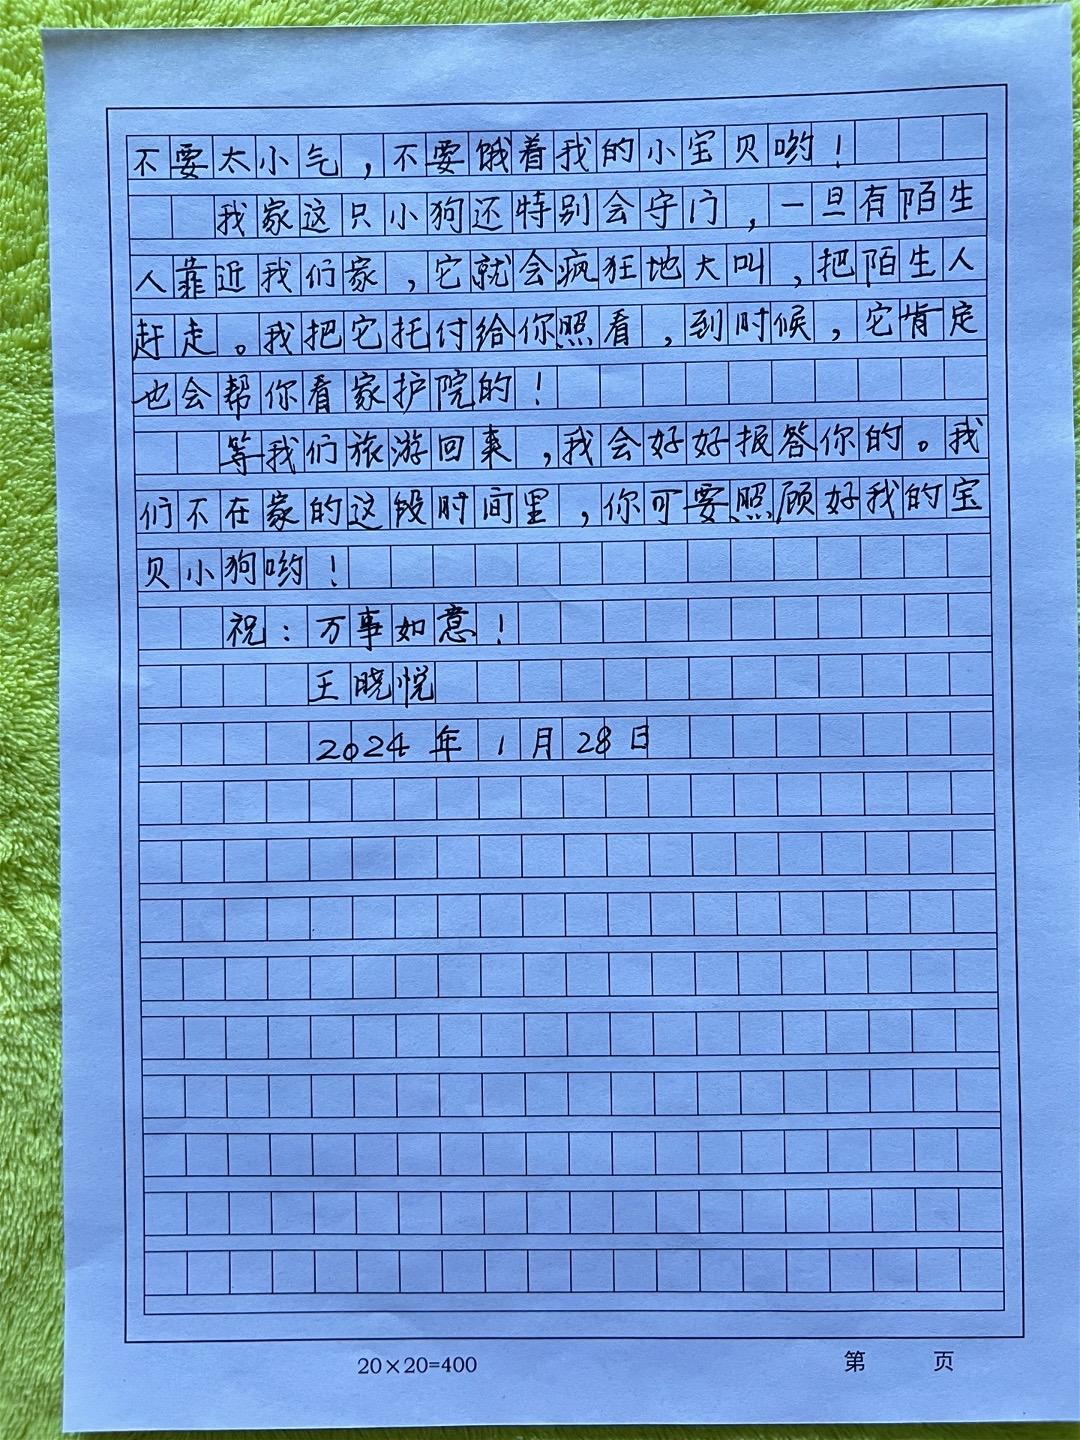 不要太小气，不要饿着我的小宝贝哟！
我家这只小狗还特别会守门，一旦有陌生
人靠近我们家，它就会疯狂地大叫，把陌生人
赶走。我把它托付给你照看，到时候，它肯定
也会帮你看家护院的！
等我们旅游回来，我会好好报答你的。我
们不在家的这段时间里，你可要照顾好我的宝
贝小狗哟！
祝：万事如意！
王晓悦
2024年1月28日
20×20=400 第 页